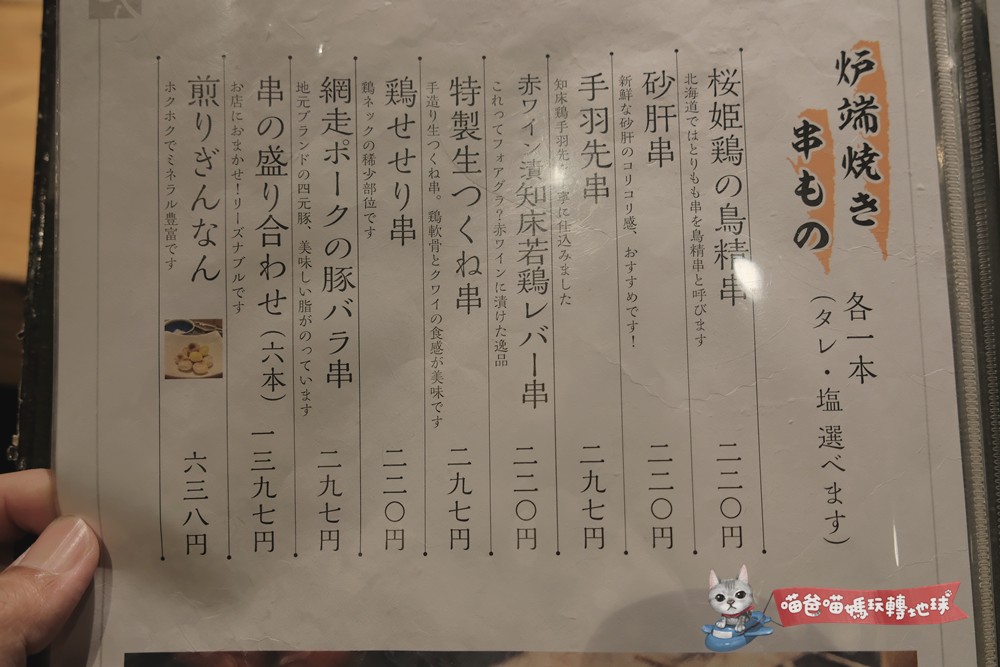 炉端焼き
串もの
各一本
(タレ・塩 選べます)
桜姫鶏の鳥精串
二二〇円
北海道ではとりもも串を鳥精串と呼びます
砂肝串
二二〇円
新鮮な砂肝のコリコリ感、おすすめです!
手羽先串
二九七円
知床鶏手羽先 寧に仕込みました
赤ワイン漬知床若鶏レバー串
二二〇円
これってフォアグラ?赤ワインに漬けた逸品
特製生つくね串
二九七円
手造り生つくね串。鶏軟骨とクワイの食感が美味です
鶏せせり串
二二〇円
鶏ネックの稀少部位です
網走ポークの豚バラ串
二九七円
地元ブランドの四元豚、美味しい脂がのっています
串の盛り合わせ(六本)
一三九七円
お店におまかせ!リーズナブルです
煎りぎんなん
六三八円
ホクホクでミネラル豊富です
喵爸喵媽玩轉地球